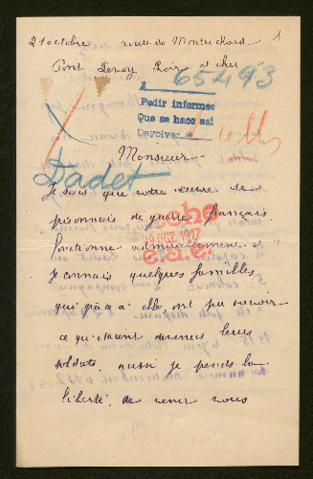 21 octobre route de Montrichard 1
Pont Levoy Loir et cher
65493
Pedir informes
Que se haco asi
Devolver
Monsieur
Dadet
Je sais que votre œuvre de
prisonniers de guerre français
fonctionne admirablement et
29 OCT. 1917
je connais quelques familles
e.a.e.
qui grâce à elle, ont pu savoir
ce qu'étaient devenus leurs
soldats, aussi je prends la
liberté, de venir vous